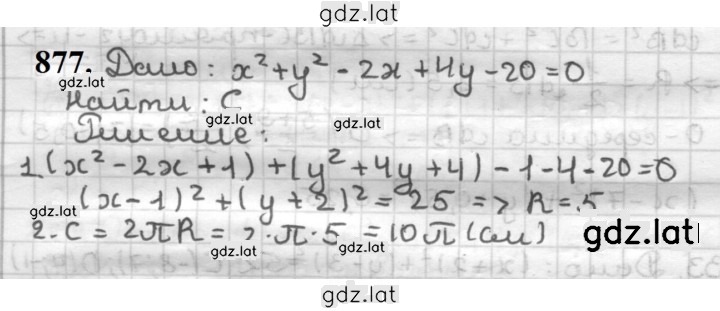 gdz.lat
877. Дано: x² + y² - 2x + 4y - 20 = 0
gdz.lat
Найти: C
gdz.lat
Решение:
gdz.lat
1. (x² - 2x + 1) + (y² + 4y + 4) - 1 - 4 - 20 = 0
(x - 1)² + (y + 2)² = 25 => R = 5
gdz.lat
2. C = 2πR = 2·π·5 = 10π (см)
gdz.lat
gdz.lat
gdz.lat